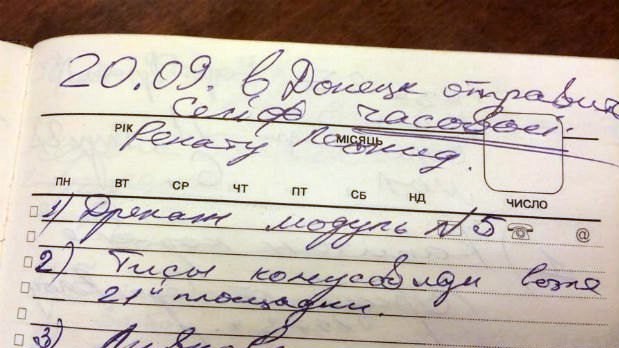 20.09. в Донецк отправить
сейф часовой.
РІК МІСЯЦЬ
Ренату Леонид.
ПН ВТ СР ЧТ ПТ СБ НД ЧИСЛО
1) Дренаж модуль №5 @
2) Тисы конусовидн возле
21й площадки.
3)